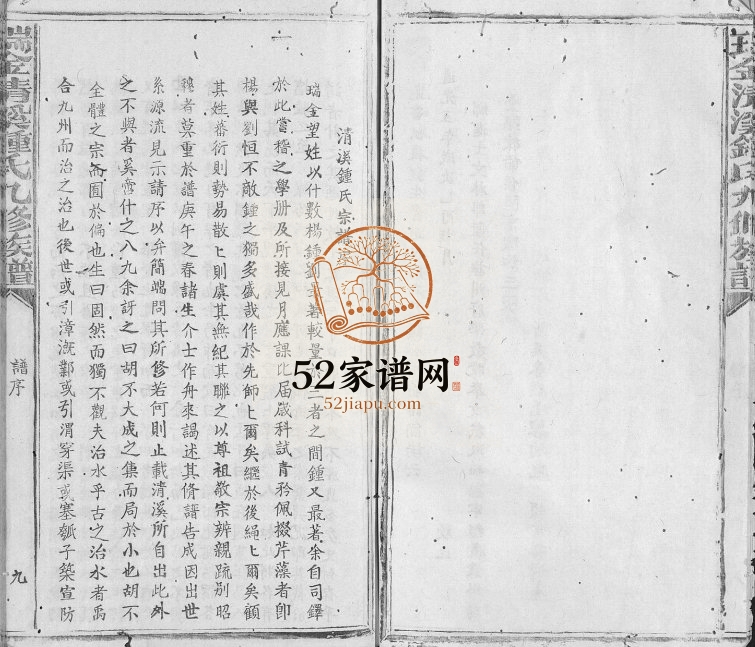 清溪鍾氏宗譜
瑞金望姓以什數楊鍾劉最著較量於二者之間鍾又最著余自司鐸
於此嘗稽之學册及所接見月應課比届歲科試青衿佩掇芹藻者卽
楊與劉恒不敵鍾之獨多盛哉作於先師匕爾矣繼於後繩匕爾矣顧
其姓蕃衍則勢易散匕則虞其無紀其聯之以尊祖敬宗辨親疏别昭
穆者莫重於譜庚午之春諸生介士作舟來謁述其脩譜告成因出世
系源流見示請序以弁簡端問其所修若何則止載清溪所自出此外
之不與者奚啻什之八九余訝之曰胡不大成之集而局於小也胡不
全體之宗而囿於偏也生曰固然而獨不觀夫治水乎古之治水者禹
合九州而治之治也後世或引漳溉鄴或引渭穿渠或塞瓠子築宣防
瑞金清溪鍾氏九修族譜
譜序
九
瑞金清溪鍾氏九修族譜
52家谱网
52jiapu.com